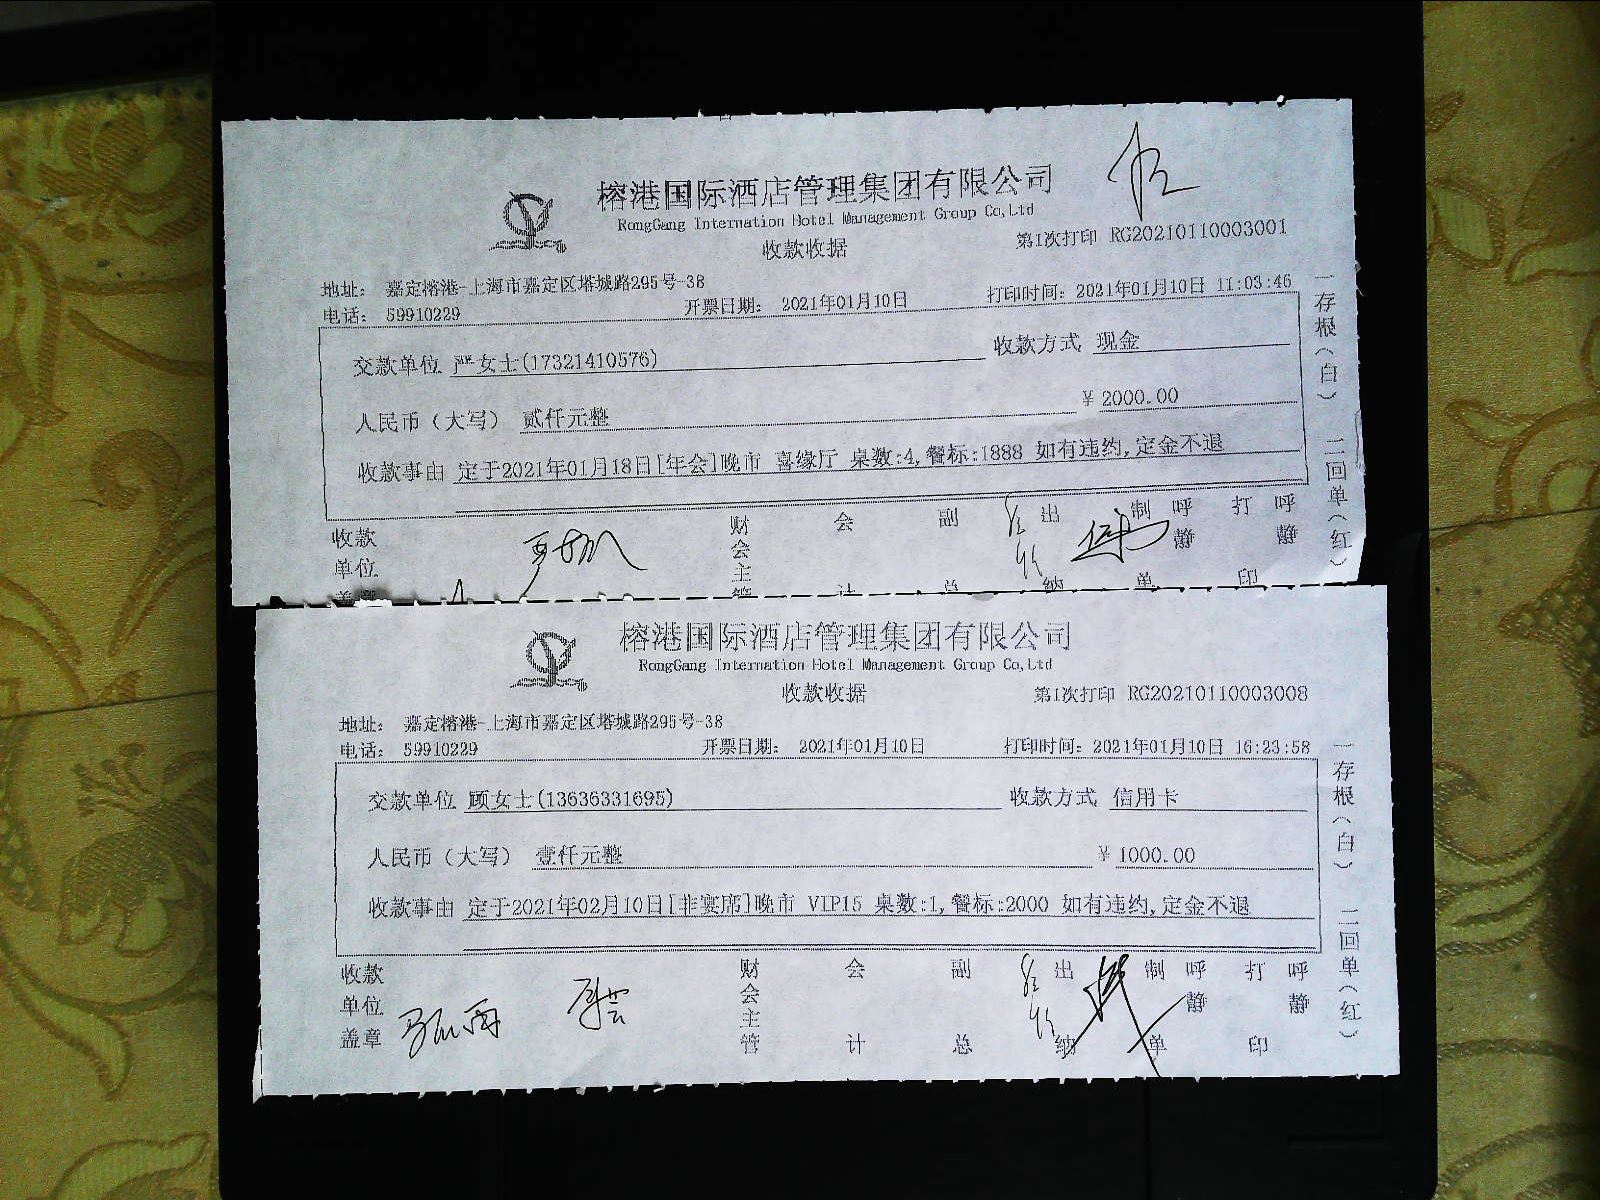 榕港国际酒店管理集团有限公司
RongGang Internation Hotel Management Group Co,Ltd
收款收据
第1次打印 RG20210110003001
地址： 嘉定榕港-上海市嘉定区塔城路295号-38
电话： 59910229
开票日期： 2021年01月10日
打印时间：2021年01月10日 11:03:46
交款单位 严女士(17321410576)
收款方式 现金
人民币（大写） 贰仟元整
￥ 2000.00
收款事由 定于2021年01月18日[年会]晚市 喜缘厅 桌数:4,餐标:1888 如有违约,定金不退
收款单位盖章
财会主管
会计
副总
出纳
制单
呼静
打印
呼静
一存根（白） 二回单（红）
榕港国际酒店管理集团有限公司
RongGang Internation Hotel Management Group Co,Ltd
收款收据
第1次打印 RG20210110003008
地址： 嘉定榕港-上海市嘉定区塔城路295号-38
电话： 59910229
开票日期： 2021年01月10日
打印时间：2021年01月10日 16:23:58
交款单位 顾女士(13636331695)
收款方式 信用卡
人民币（大写） 壹仟元整
￥ 1000.00
收款事由 定于2021年02月10日[非宴席]晚市 VIP15 桌数:1,餐标:2000 如有违约,定金不退
收款单位盖章
财会主管
会计
副总
出纳
制单
呼静
打印
呼静
一存根（白） 二回单（红）